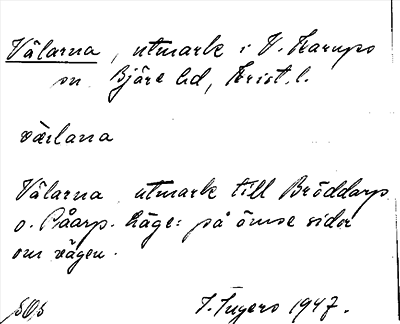 Välarna, utmark i V. Karups
sn Bjäre hd, Krist. l.
värlana
Välarna utmark till Bröddarp
o. Påarp. Läge: på ömse sidor
om vägen.
I. Ingers 1947.